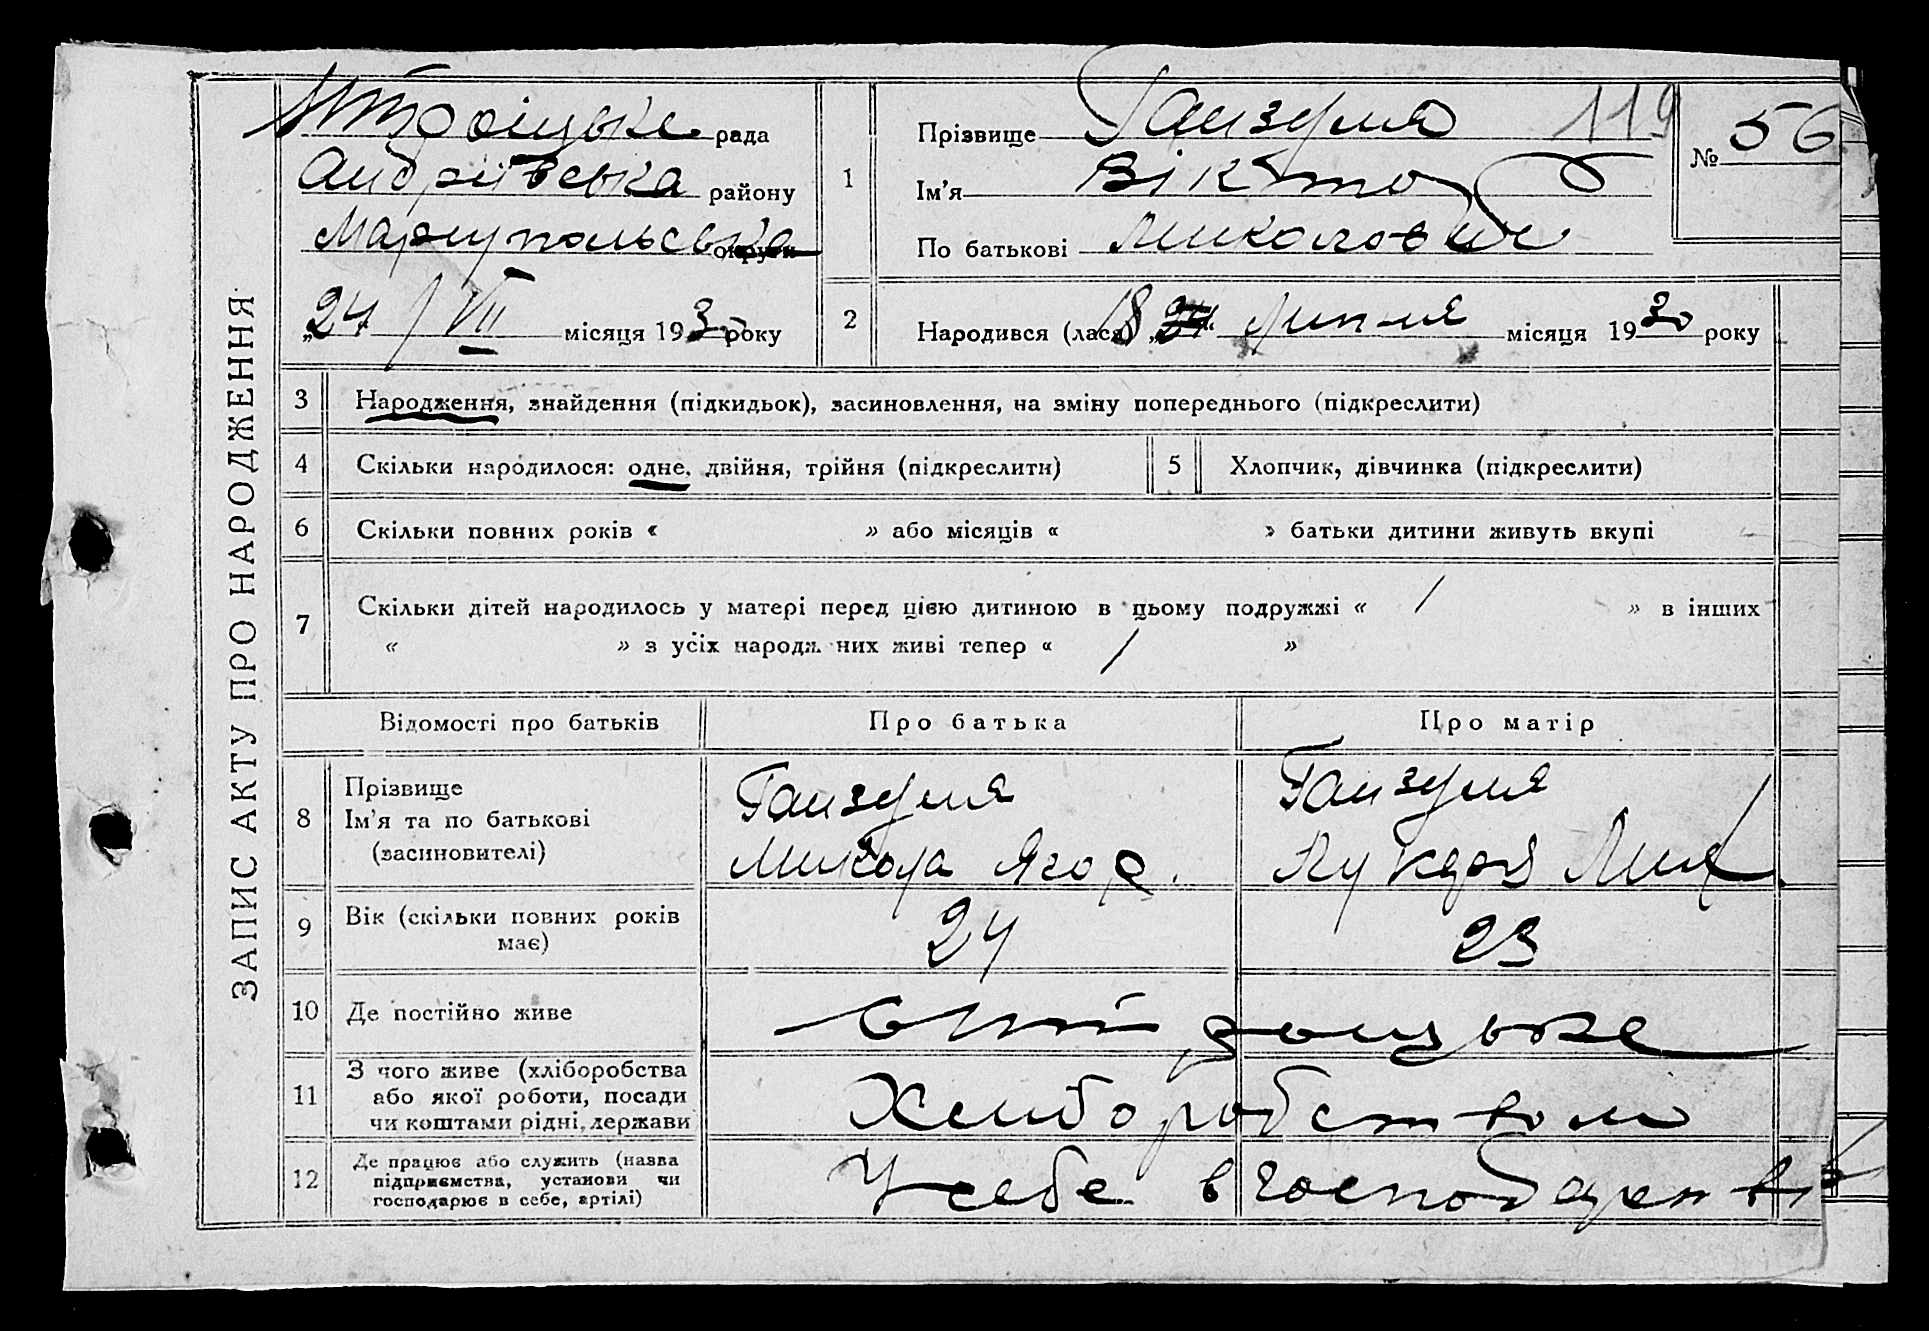 ЗАПИС АКТУ ПРО НАРОДЖЕННЯ
рада
Андріївська району
Маріупольська округи
„24 / VII місяця 1930 року
1
Прізвище Ганзуля 119
Ім'я Віктор
По батькові Миколович
№ 56
2
Народився (лася) 18 „24“ липня місяця 1930 року
3 Народження, знайдення (підкидьок), засиновлення, на зміну попереднього (підкреслити)
4 Скільки народилося: одне, двійня, трійня (підкреслити) 5 Хлопчик, дівчинка (підкреслити)
6 Скільки повних років « » або місяців « » батьки дитини живуть вкупі
7 Скільки дітей народилось у матері перед цією дитиною в цьому подружжі « / » в інших
« » з усіх народж них живі тепер « / »
Відомості про батьків Про батька Про матір
8 Прізвище
Ім'я та по батькові
(засиновителі)
Ганзуля
Микола Ягор.
Ганзуля
Лукдря Мих.
9 Вік (скільки повних років
має)
24 23
10 Де постійно живе
11 З чого живе (хліборобства
або якої роботи, посади
чи коштами рідні, держави
Хлиборобством
12 Де працює або служить (назва
підприємства, установи чи
господарює в себе, артілі)
У себе в господарстві